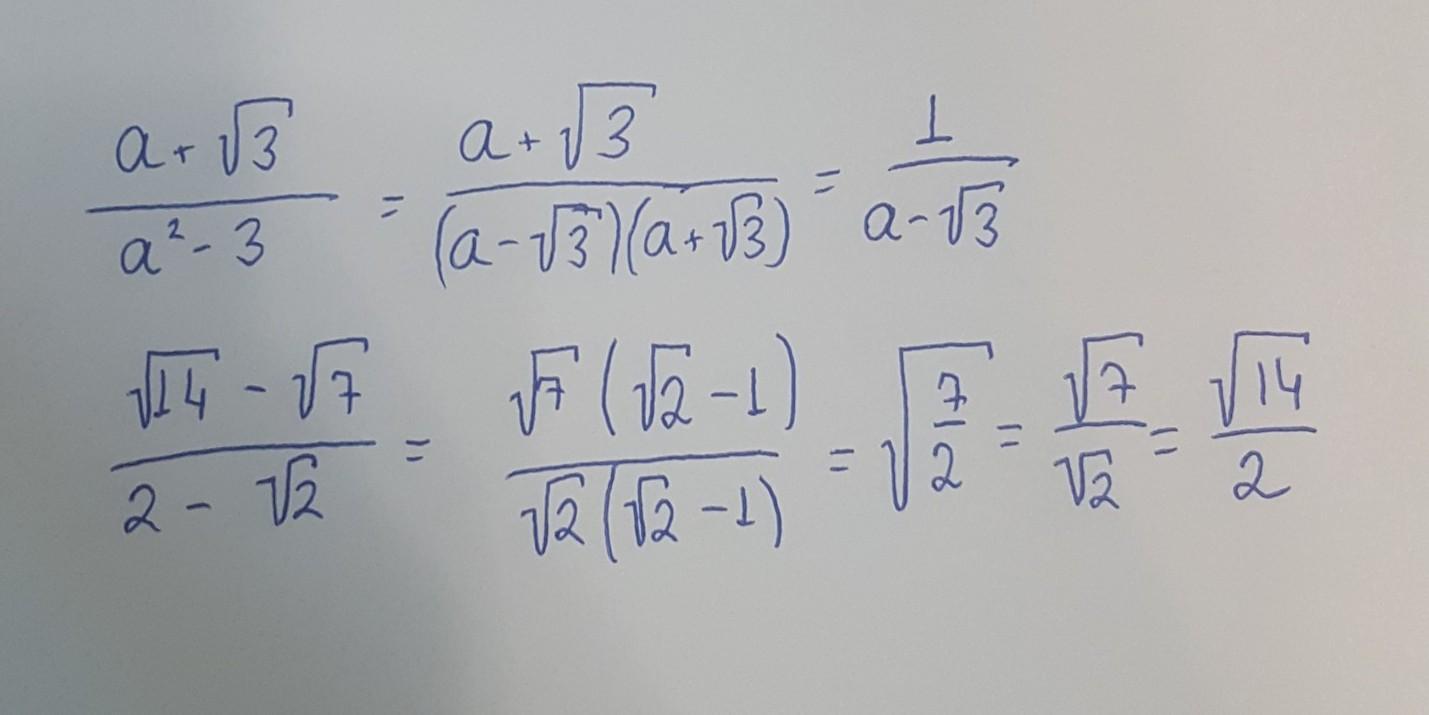 (a+√3)/(a²-3) = (a+√3)/((a-√3)(a+√3)) = 1/(a-√3)
(√14-√7)/(2-√2) = (√7(√2-1))/(√2(√2-1)) = √(7/2) = √7/√2 = √14/2